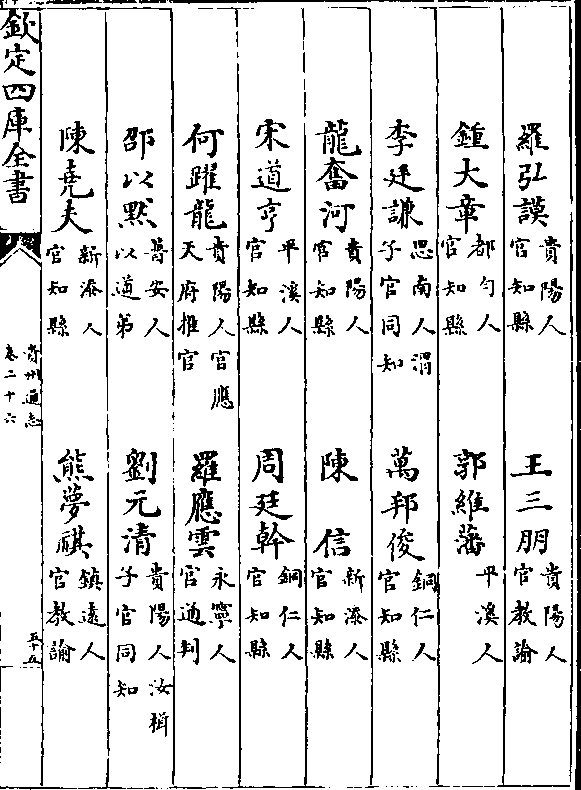 羅弘謨 貴陽人官知縣 王三朋 貴陽人官教諭
鍾大章 都勻人官知縣 郭維藩 平溪人
李廷謙 思南人渭子官同知 萬邦俊 銅仁人官知縣
龍奮河 貴陽人官知縣 陳信 新添人官知縣
宋道亨 平溪人官知縣 周廷幹 銅仁人官知縣
何躍龍 貴陽人官應天府推官 羅應雲 永寧人官通判
邵以默 普安人以道弟 劉元清 貴陽人汝楫子官同知
陳堯夫 新添人官知縣 熊夢麒 鎮遠人官教諭
欽定四庫全書
貴州通志
卷二十六
五十五